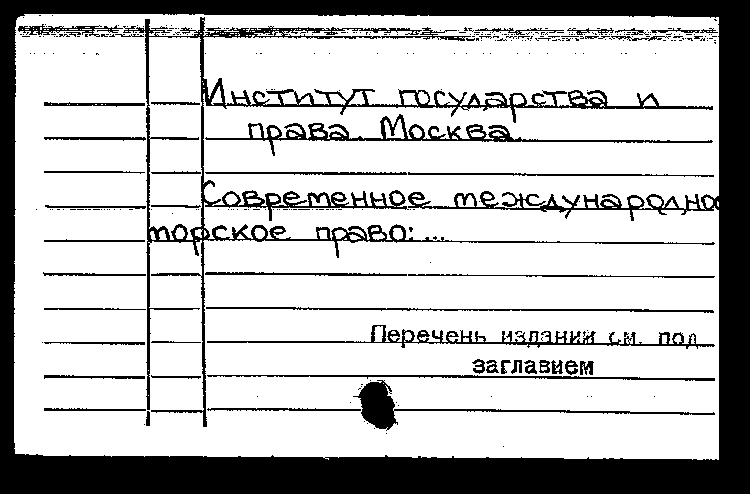 Институт государства и
права. Москва.
Современное международно
торское право: ...
Перечень изданий см. под
заглавием